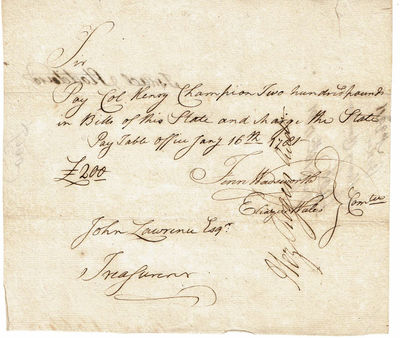 Sir
Pay Col Henry Champion Two hundred pounds
in Bills of this State and charge the State
Pay Table office Jany 16th 1781
£200
Fenn Wadsworth
Eleazer Wales
Comtee
John Lawrence Esqr
Treasurer